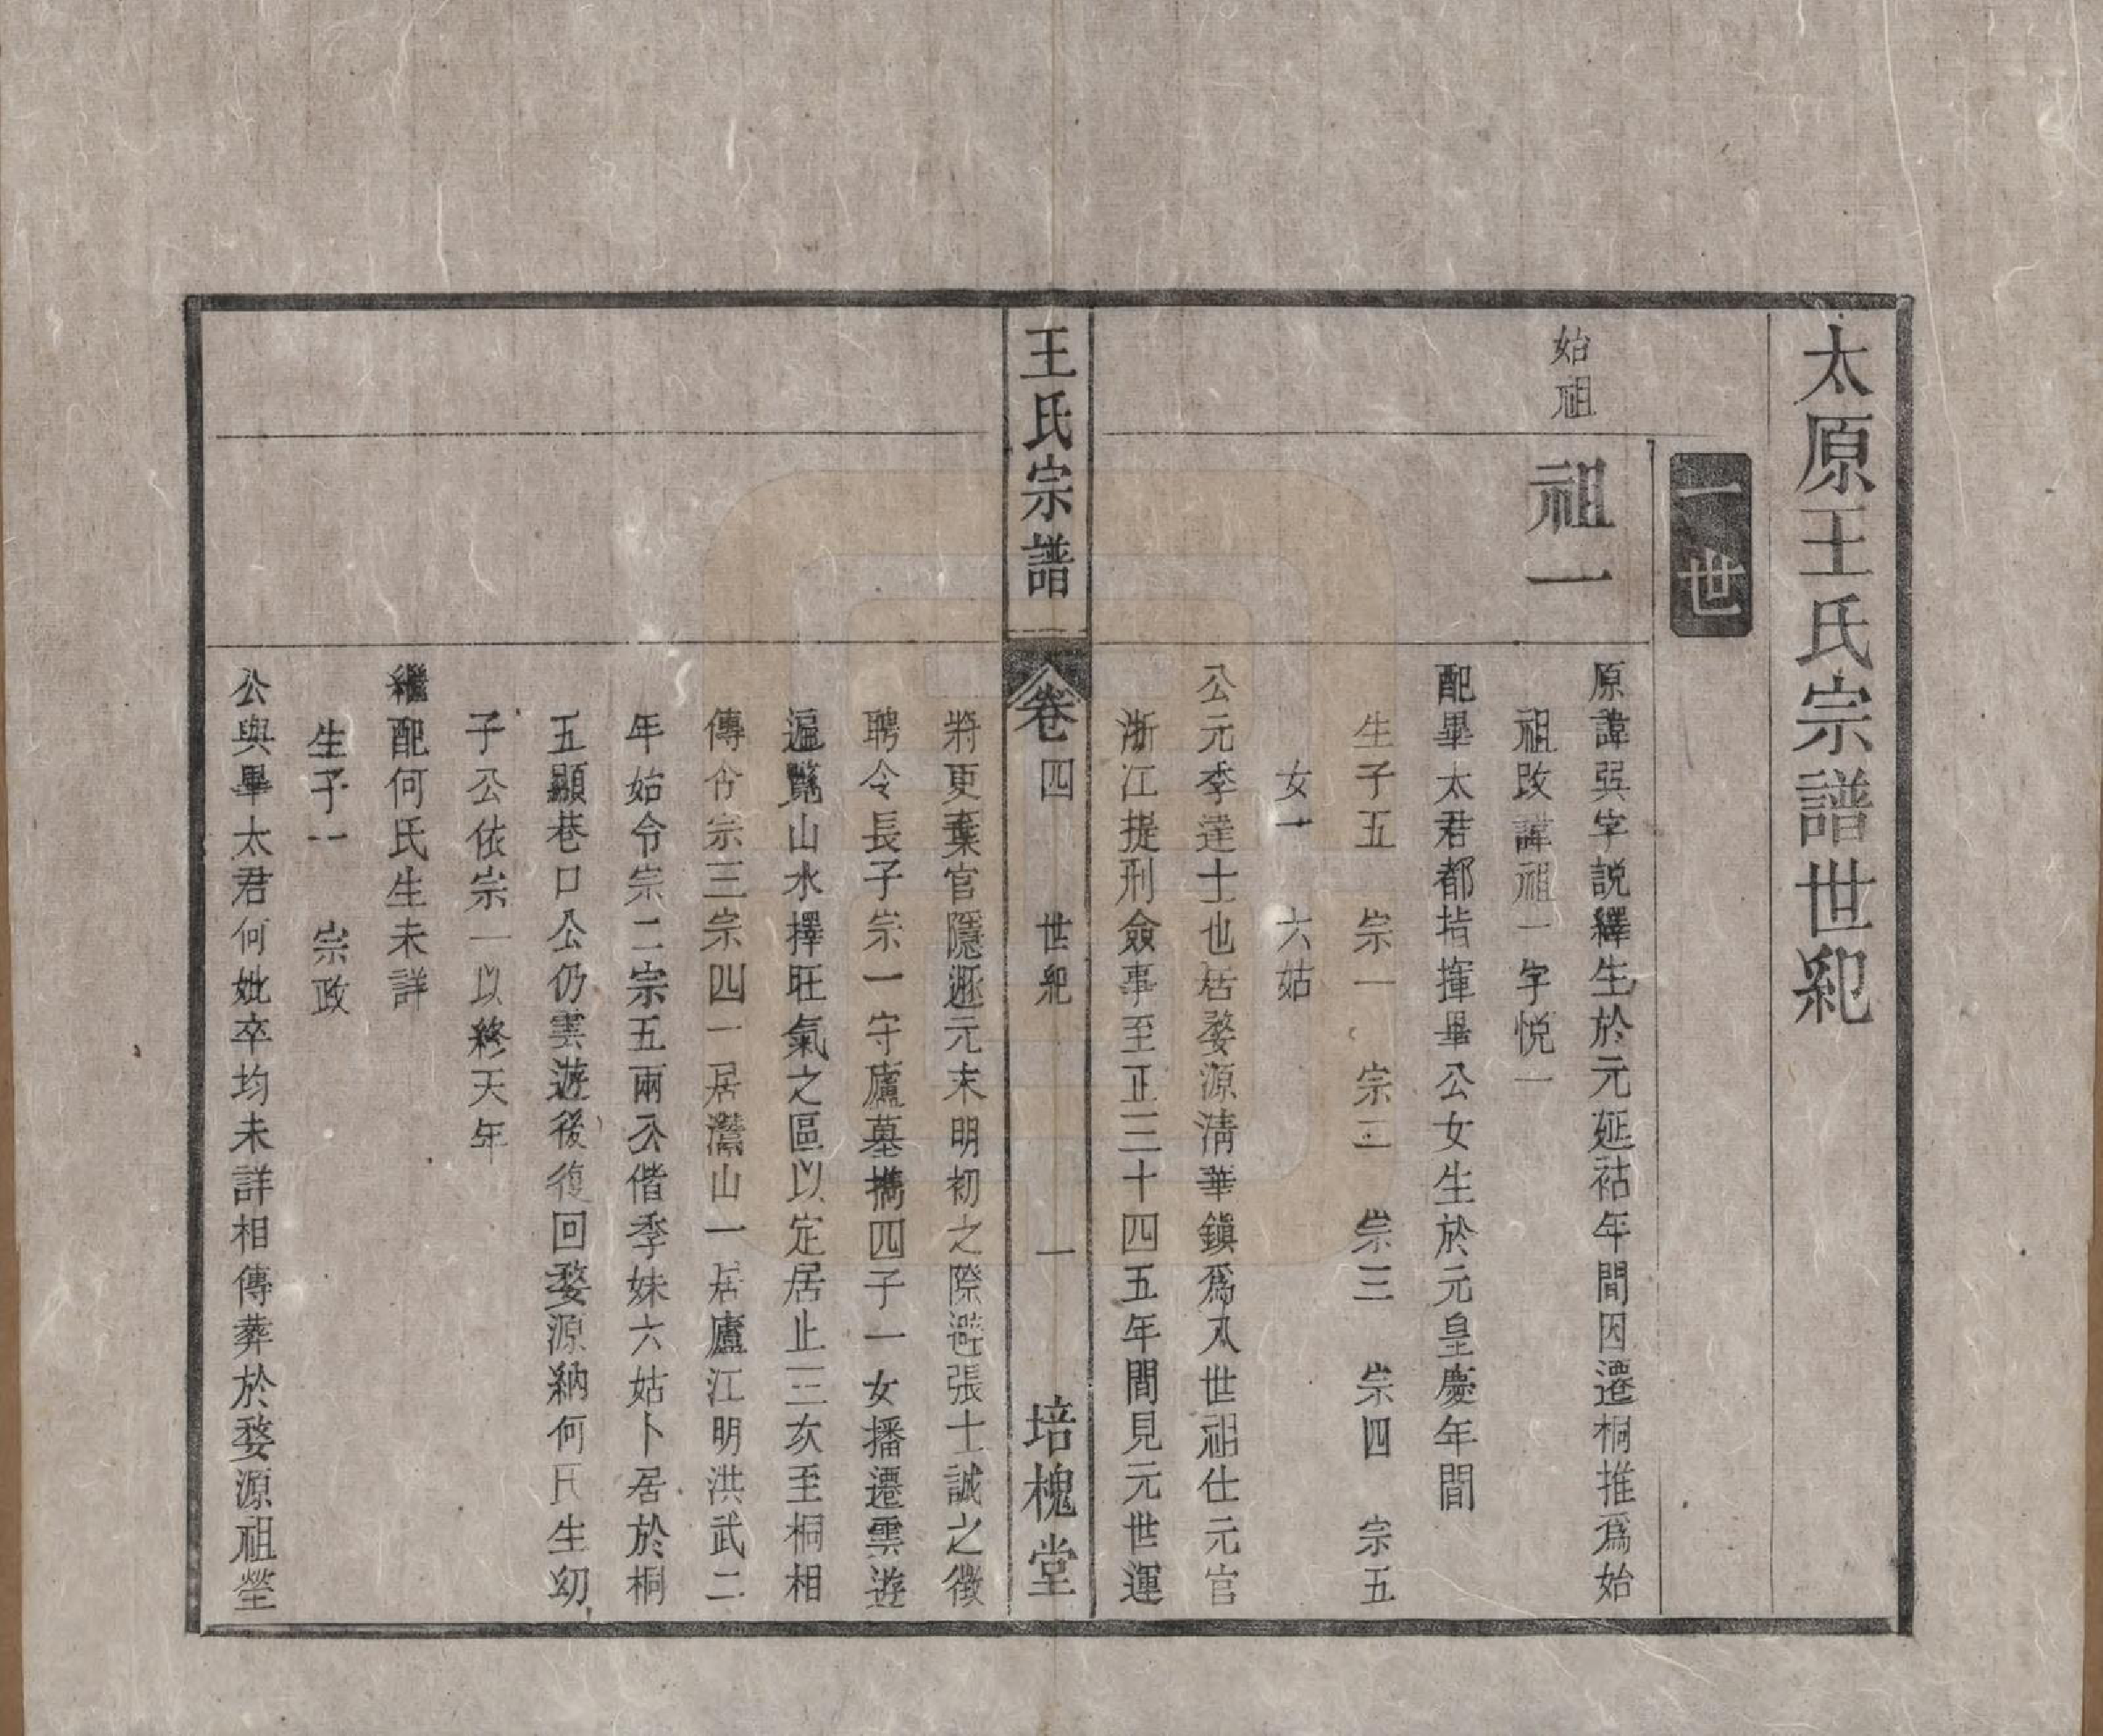 太原王氏宗譜世紀
一世
始祖
祖一
原諱巽字説繹生於元延祐年間因遷桐推爲始
祖改諱祖一字悦一
配畢太君都指揮畢公女生於元皇慶年間
生子五 宗一 宗二 宗三 宗四 宗五
女一 六姑
公元季達士也居婺源清華鎮爲八世祖仕元官
浙江提刑僉事至正三十四五年間見元世運
王氏宗譜 卷四 世紀 一 培槐堂
將更棄官隱遯元末明初之際避張士誠之徵
聘令長子宗一守廬墓攜四子一女播遷雲遊
遍覽山水擇旺氣之區以定居止三次至桐相
傳令宗三宗四一居灊山一居廬江明洪武二
年始令宗二宗五兩公偕季妹六姑卜居於桐
五顯巷口公仍雲遊後復回婺源納何氏生幼
子公依宗一以終天年
繼配何氏生未詳
生子一 宗政
公與畢太君何妣卒均未詳相傳葬於婺源祖塋